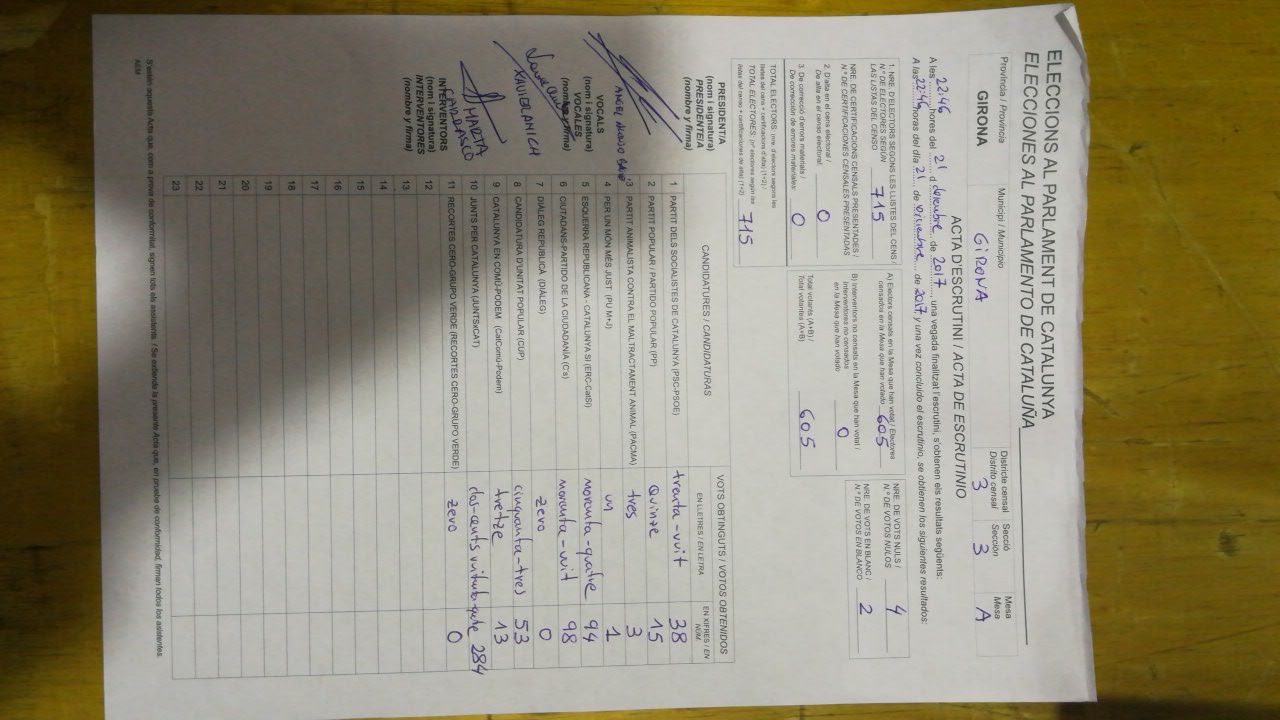 ELECCIONS AL PARLAMENT DE CATALUNYA
ELECCIONES AL PARLAMENTO DE CATALUÑA
Província / Provincia
GIRONA
Municipi / Municipio
GIRONA
Districte censal
Distrito censal
3
Secció
Sección
3
Mesa
Mesa
A
ACTA D'ESCRUTINI / ACTA DE ESCRUTINIO
A les 22:46 hores del 21 d desembre de 2017, una vegada finalitzat l'escrutini, s'obtenen els resultats següents:
A las 22:46 horas del día 21 de diciembre de 2017 y una vez concluido el escrutinio, se obtienen los siguientes resultados:
1. NRE. D'ELECTORS SEGONS LES LLISTES DEL CENS /
N.º DE ELECTORES SEGÚN
LAS LISTAS DEL CENSO 715
NRE. DE CERTIFICACIONS CENSALS PRESENTADES /
N.º DE CERTIFICACIONES CENSALES PRESENTADAS
2. D'alta en el cens electoral /
De alta en el censo electoral: 0
3. De correcció d'errors materials /
De corrección de errores materiales: 0
TOTAL ELECTORS: (nre. d'electors segons les
llistes del cens + certificacions d'alta) (1+2) /
TOTAL ELECTORES: (nº electores según las
listas del censo + certificaciones de alta) (1+2) 715
A) Electors censats en la Mesa que han votat / Electores
censados en la Mesa que han votado 605
B) Interventors no censats en la Mesa que han votat /
Interventores no censados
en la Mesa que han votado 0
Total votants (A+B) /
Total votantes (A+B) 605
NRE. DE VOTS NULS /
N.º DE VOTOS NULOS 4
NRE. DE VOTS EN BLANC /
N.º DE VOTOS EN BLANCO 2
CANDIDATURES / CANDIDATURAS
VOTS OBTINGUTS / VOTOS OBTENIDOS
EN LLETRES / EN LETRA
EN XIFRES / EN NÚM.
1 PARTIT DELS SOCIALISTES DE CATALUNYA (PSC-PSOE) trenta-vuit 38
2 PARTIT POPULAR / PARTIDO POPULAR (PP) Quinze 15
3 PARTIT ANIMALISTA CONTRA EL MALTRACTAMENT ANIMAL (PACMA) tres 3
4 PER UN MÓN MÉS JUST (PUM+J) un 1
5 ESQUERRA REPUBLICANA - CATALUNYA SÍ (ERC-CatSí) noranta-quatre 94
6 CIUTADANS-PARTIDO DE LA CIUDADANÍA (C's) noranta-vuit 98
7 DIÀLEG REPUBLICÀ (DIÀLEG) zero 0
8 CANDIDATURA D'UNITAT POPULAR (CUP) cinquanta-tres 53
9 CATALUNYA EN COMÚ-PODEM (CatComú-Podem) tretze 13
10 JUNTS PER CATALUNYA (JUNTSxCAT) dos-cents vuitanta-quatre 284
11 RECORTES CERO-GRUPO VERDE (RECORTES CERO-GRUPO VERDE) zero 0
12
13
14
15
16
17
18
19
20
21
22
23
PRESIDENT/A
(nom i signatura)
PRESIDENTE/A
(nombre y firma)
VOCALS
(nom i signatura)
VOCALES
(nombre y firma)
XAVIER
MARTA
INTERVENTORS
(nom i signatura)
INTERVENTORES
(nombre y firma)
S'estén aquesta Acta que, com a prova de conformitat, signen tots els assistents. / Se extiende la presente Acta que, en prueba de conformidad, firman todos los asistentes.